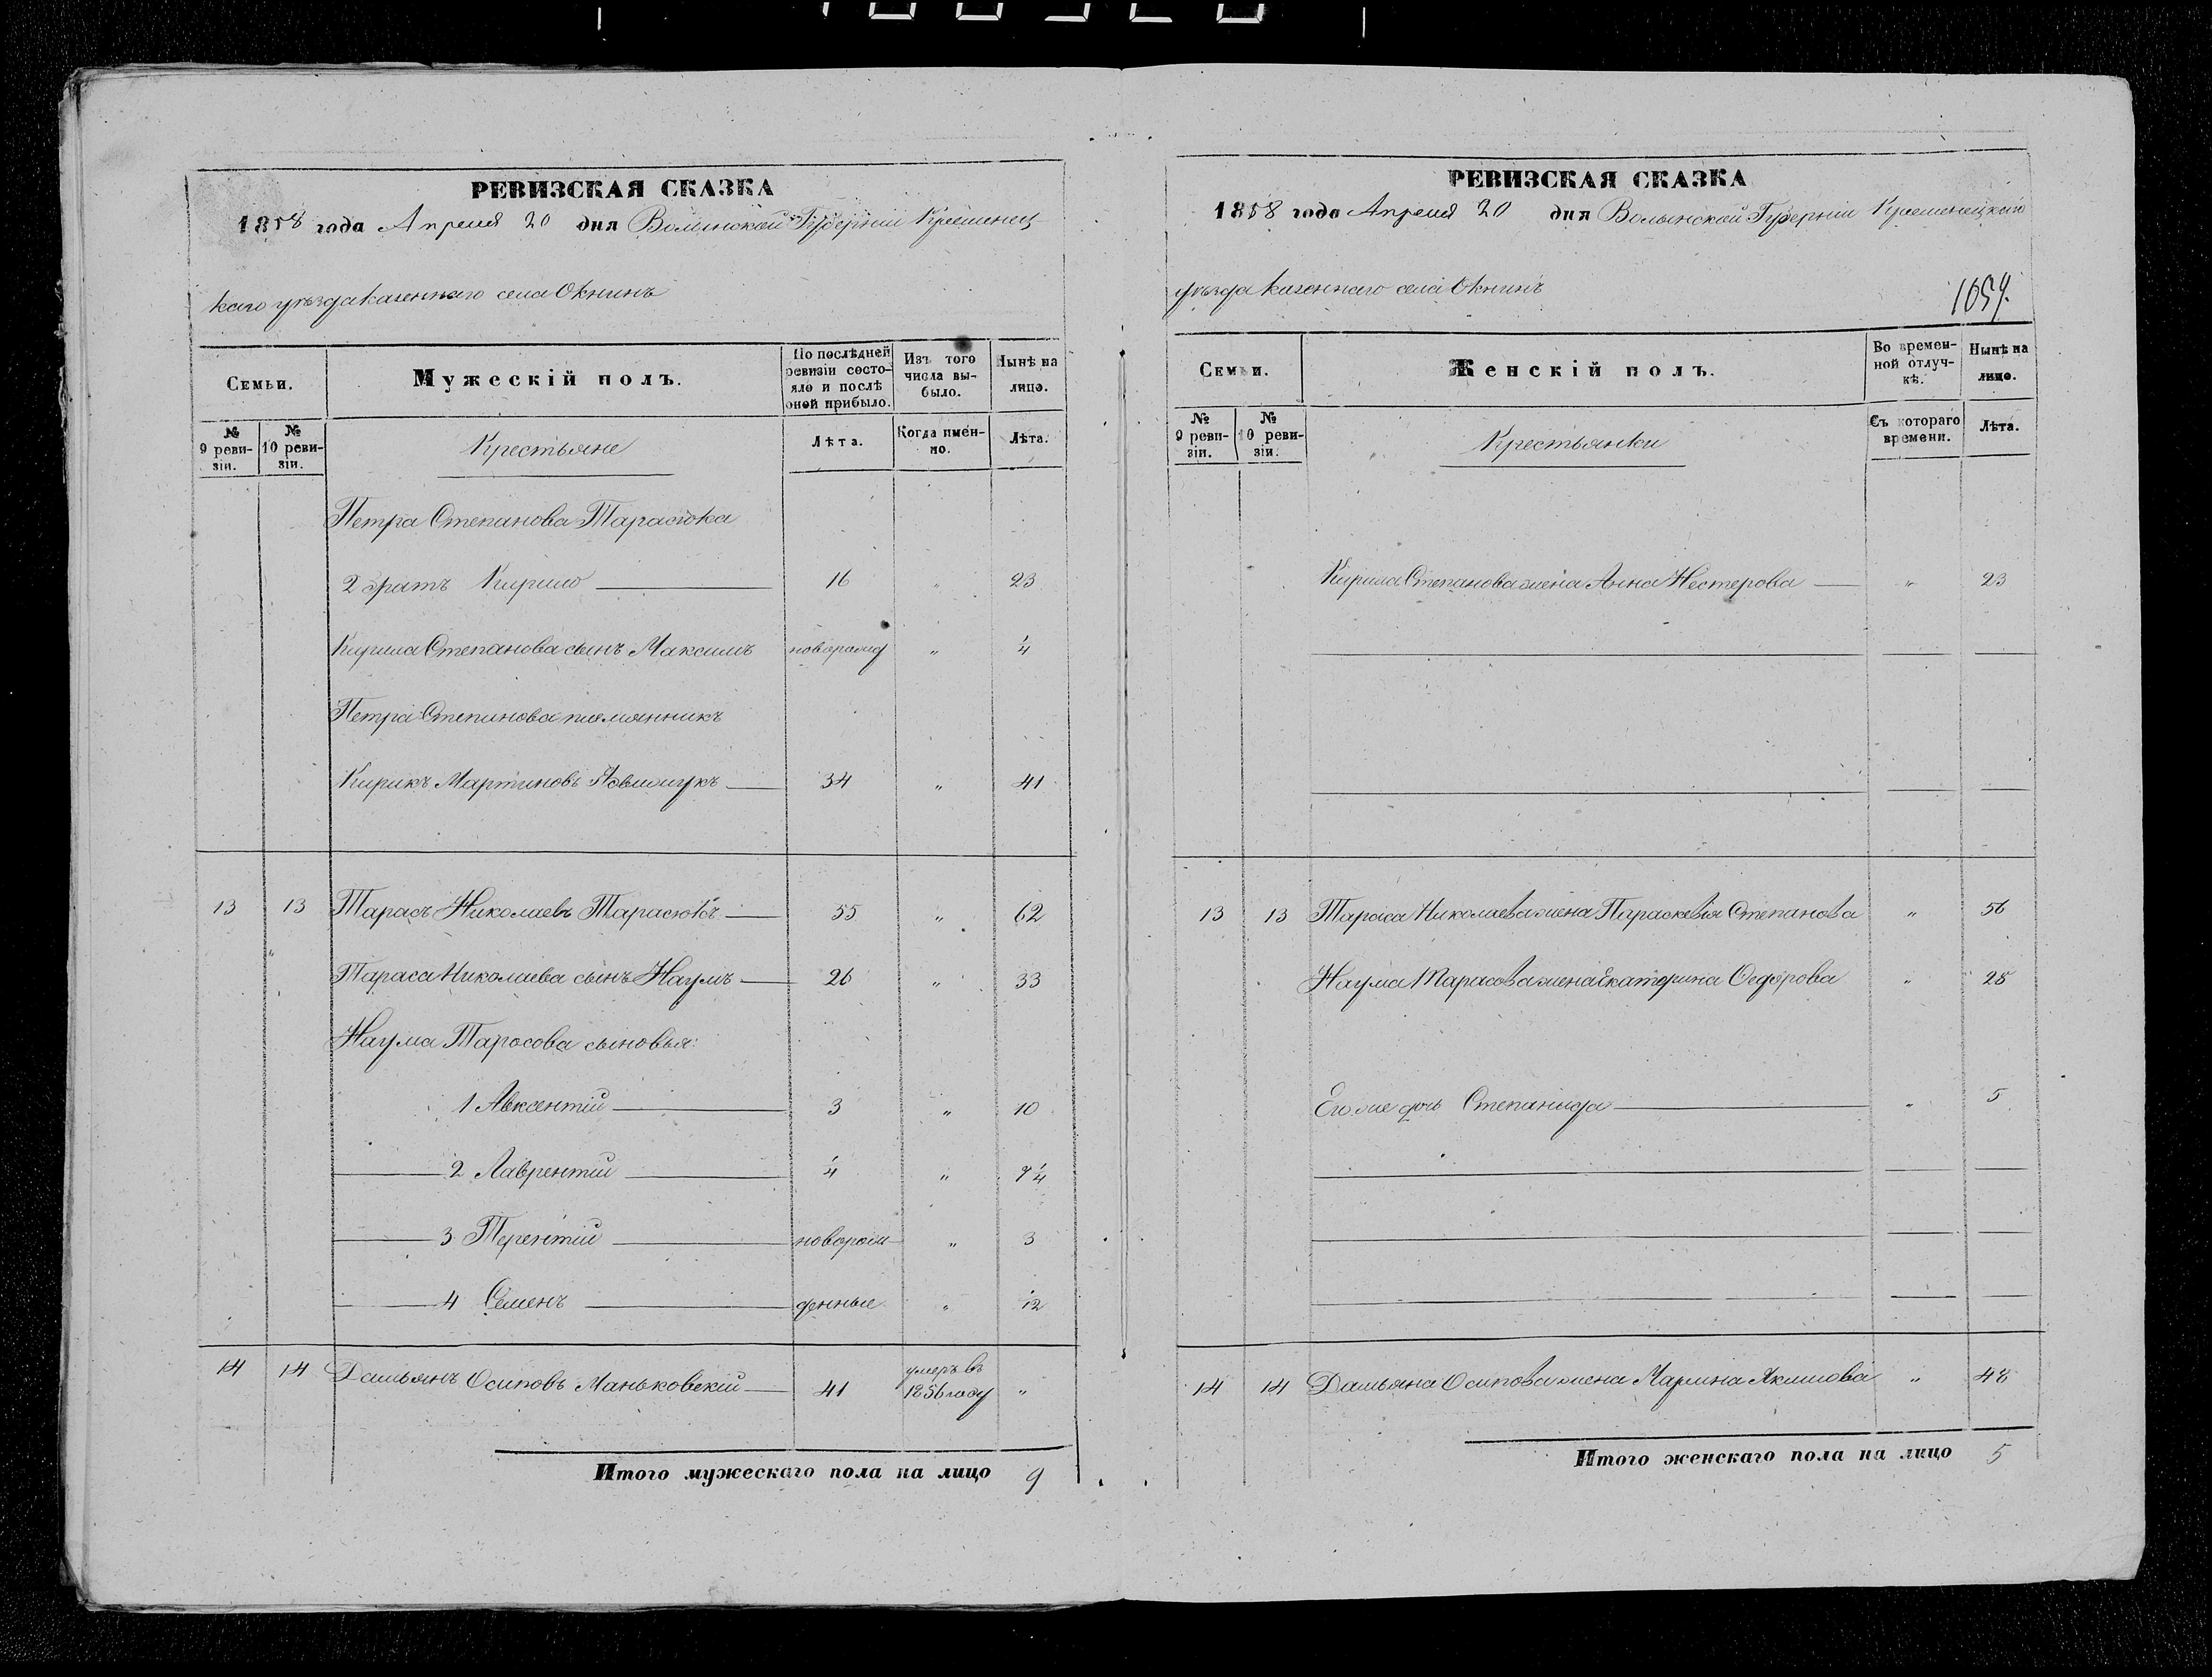 РЕВИЗСКАЯ СКАЗКА
1858 года Апреля 20 дня Волынской Губерніи Кременец
каго уѣзда казеннаго села Окнинъ
Семьи.
Мужескій полъ.
По послѣдней ревизіи состояло и послѣ оной прибыло.
Изъ того числа выбыло.
Нынѣ на лицо.
№ 9 ревизіи.
№ 10 ревизіи.
Крестьяне
Лѣта.
Когда именно.
Лѣта.
Петра Степанова Тарасюка
2 братъ Кирило 16 " 23
Кирила Степанова сынъ Максимъ новорожд " 1/4
Петра Степанова племянникъ
Кирикъ Мартиновъ 34 " 41
13 13 Тарасъ Николаевъ Тарасюкъ 55 " 62
Тараса Николаева сынъ Наумъ 26 " 33
Наума Тарасова сыновья:
1 Авксентій 3 " 10
2 Лаврентій 1/4 " 7 1/4
3 Терентій новорож " 3
4 Семенъ денные " 1/2
14 14 Дамьянъ Осиповъ Маньковскій 41 умеръ въ 1856 году "
Итого мужескаго пола на лицо 9
РЕВИЗСКАЯ СКАЗКА
1858 года Апреля 20 дня Волынской Губерніи Кременецкаго
уѣзда казеннаго села Окнинъ
Семьи.
Женскій полъ.
Во временной отлучкѣ.
Нынѣ на лицо.
№ 9 ревизіи.
№ 10 ревизіи.
Крестьянки
Съ котораго времени.
Лѣта.
Кирила Степанова жена Анна Нестерова " 23
13 13 Тараса Николаева жена Параскевія Степанова " 56
Наума Тарасова жена Екатерина Федорова " 28
Его же дочь Степанида " 5
14 14 Дамьяна Осипова жена Марина Якимова " 48
Итого женскаго пола на лицо 5